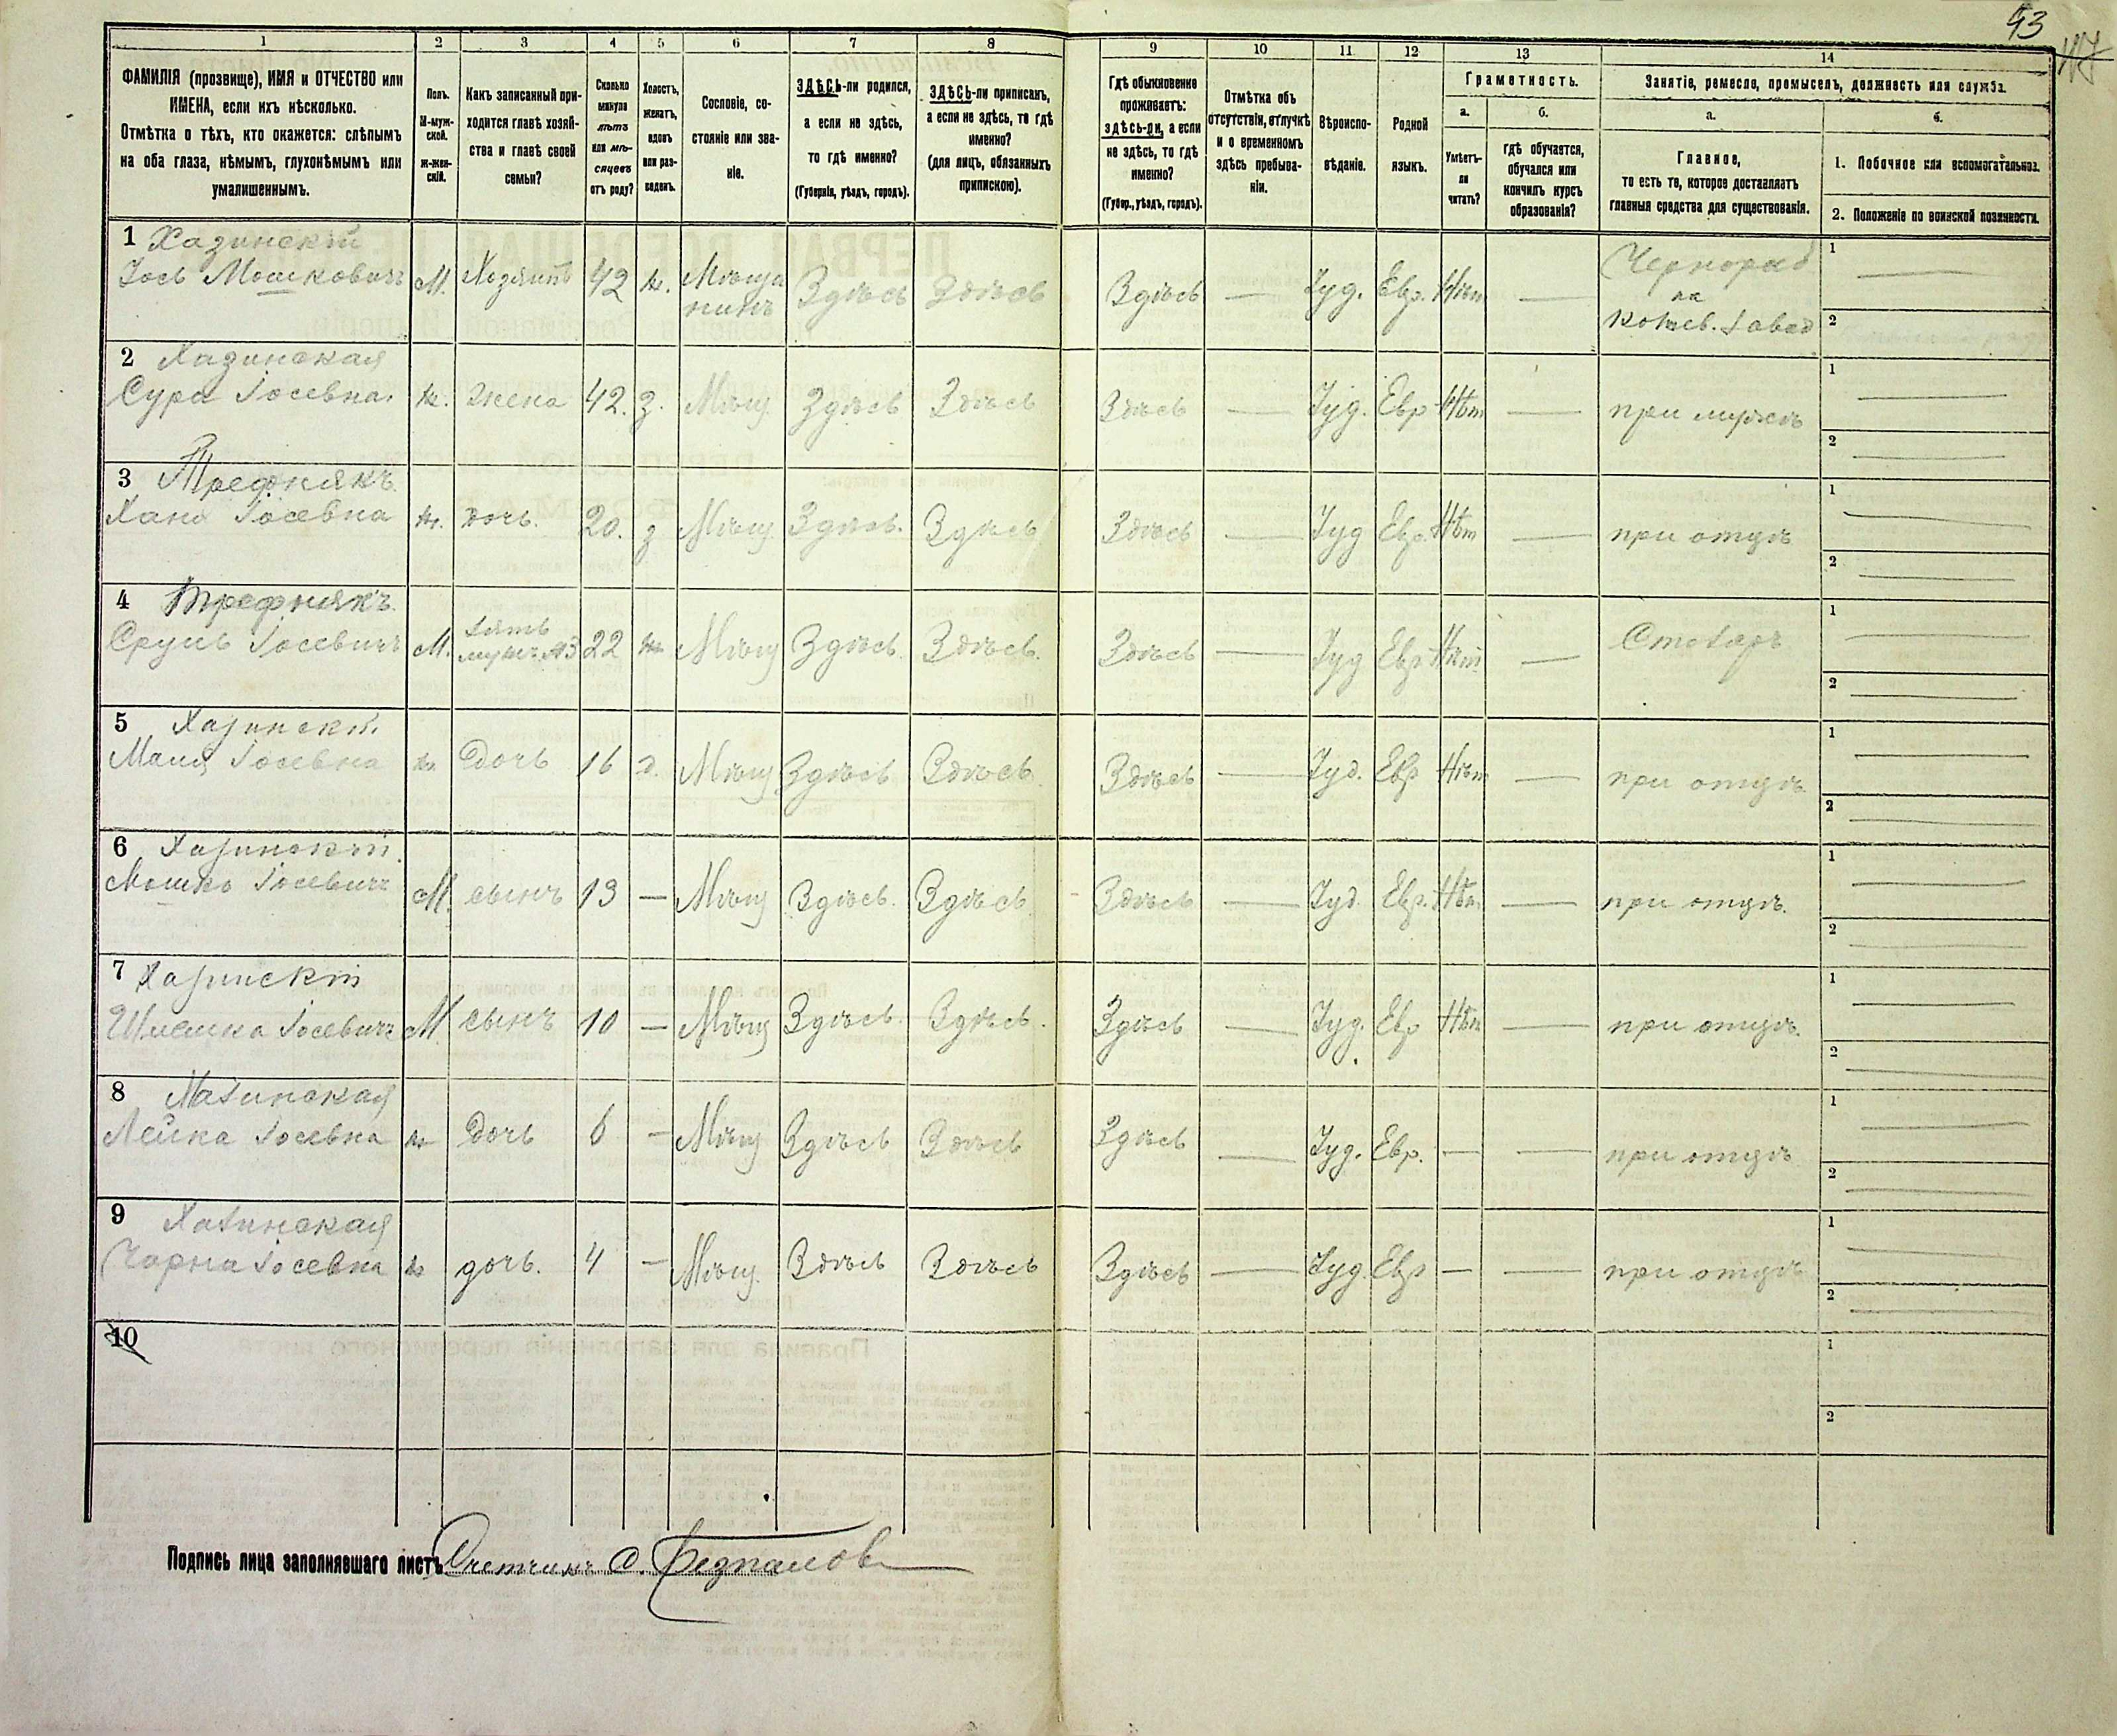 93
1 2 3 4 5 6 7 8 9 10 11 12 13 14
ФАМИЛІЯ (прозвище), ИМЯ и ОТЧЕСТВО или
ИМЕНА, если ихъ нѣсколько.
Отмѣтка о тѣхъ, кто окажется: слѣпымъ
на оба глаза, нѣмымъ, глухонѣмымъ или
умалишеннымъ.
Полъ.
М-муж-
ской.
Ж-жен-
скій.
Какъ записанный при-
ходится главѣ хозяй-
ства и главѣ своей
семьи?
Сколько
минуло
лѣтъ
или мѣ-
сяцевъ
отъ роду?
Холостъ,
женатъ,
вдовъ
или раз-
веденъ.
Сословіе, со-
стояніе или зва-
ніе.
ЗДѢСЬ-ли родился,
а если не здѣсь,
то гдѣ именно?
(Губернія, уѣздъ, городъ).
ЗДѢСЬ-ли приписанъ,
а если не здѣсь, то гдѣ
именно?
(для лицъ, обязанныхъ
припискою).
Гдѣ обыкновенно
проживаетъ:
здѣсь-ли, а если
не здѣсь, то гдѣ
именно?
(Губер., уѣздъ, городъ).
Отмѣтка объ
отсутствіи, отлучкѣ
и о временномъ
здѣсь пребыва-
ніи.
Вѣроиспо-
вѣданіе.
Родной
языкъ.
Грамотность.
а.
Умѣетъ-
ли
читать?
б.
гдѣ обучается,
обучался или
кончилъ курсъ
образованія?
Занятіе, ремесло, промыселъ, должность или служба.
а.
Главное,
то есть то, которое доставляетъ
главныя средства для существованія.
б.
1. Побочное или вспомогательное.
2. Положеніе по воинской повинности.
1 Хазинскій
Іось Мошковичъ М. Хозяинъ 42 ж. Мѣща
нинъ Здѣсь Здѣсь Здѣсь — Іуд. Евр. Нѣт — Чернораб
на
кожев. завод 1 —
2
2 Хазинская
Сура Іосевна. ж. жена 42. з. Мѣщ Здѣсь Здѣсь Здѣсь — Іуд. Евр Нѣт — при мужѣ 1 —
2 —
3 Трефнякъ
Хана Іосевна ж. дочь. 20. з Мѣщ Здѣсь. Здѣсь Здѣсь — Іуд Евр. Нѣт — при отцѣ 1 —
2 —
4 Трефнякъ
Сруль Іосевичъ М. зять
мужъ №3 22 ж Мѣщ Здѣсь. Здѣсь. Здѣсь — Іуд Евр Нѣт — Столяръ 1 —
2 —
5 Хазинск.
Маня Іосевна ж. Дочь 16 д. Мѣщ Здѣсь Здѣсь Здѣсь — Іуд. Евр Нѣт — при отцѣ 1 —
2 —
6 Хазинскій
Мошко Іосевичъ М. сынъ 13 — Мѣщ Здѣсь. Здѣсь Здѣсь — Іуд. Евр. Нѣт — при отцѣ. 1 —
2 —
7 Хазинскій
Шлемка Іосевичъ М. сынъ 10 — Мѣщ Здѣсь Здѣсь. Здѣсь — Іуд. Евр Нѣт — при отцѣ. 1 —
2 —
8 Хазинская
Лейка Іосевна ж дочь 6 — Мѣщ Здѣсь Здѣсь Здѣсь — Іуд. Евр. — — при отцѣ 1 —
2 —
9 Хазинская
Чарна Іосевна ж дочь. 4 — Мѣщ. Здѣсь Здѣсь Здѣсь — Іуд. Евр — — при отцѣ 1 —
2 —
10
1
2
Подпись лица заполнявшаго листъ Счетчикъ С.